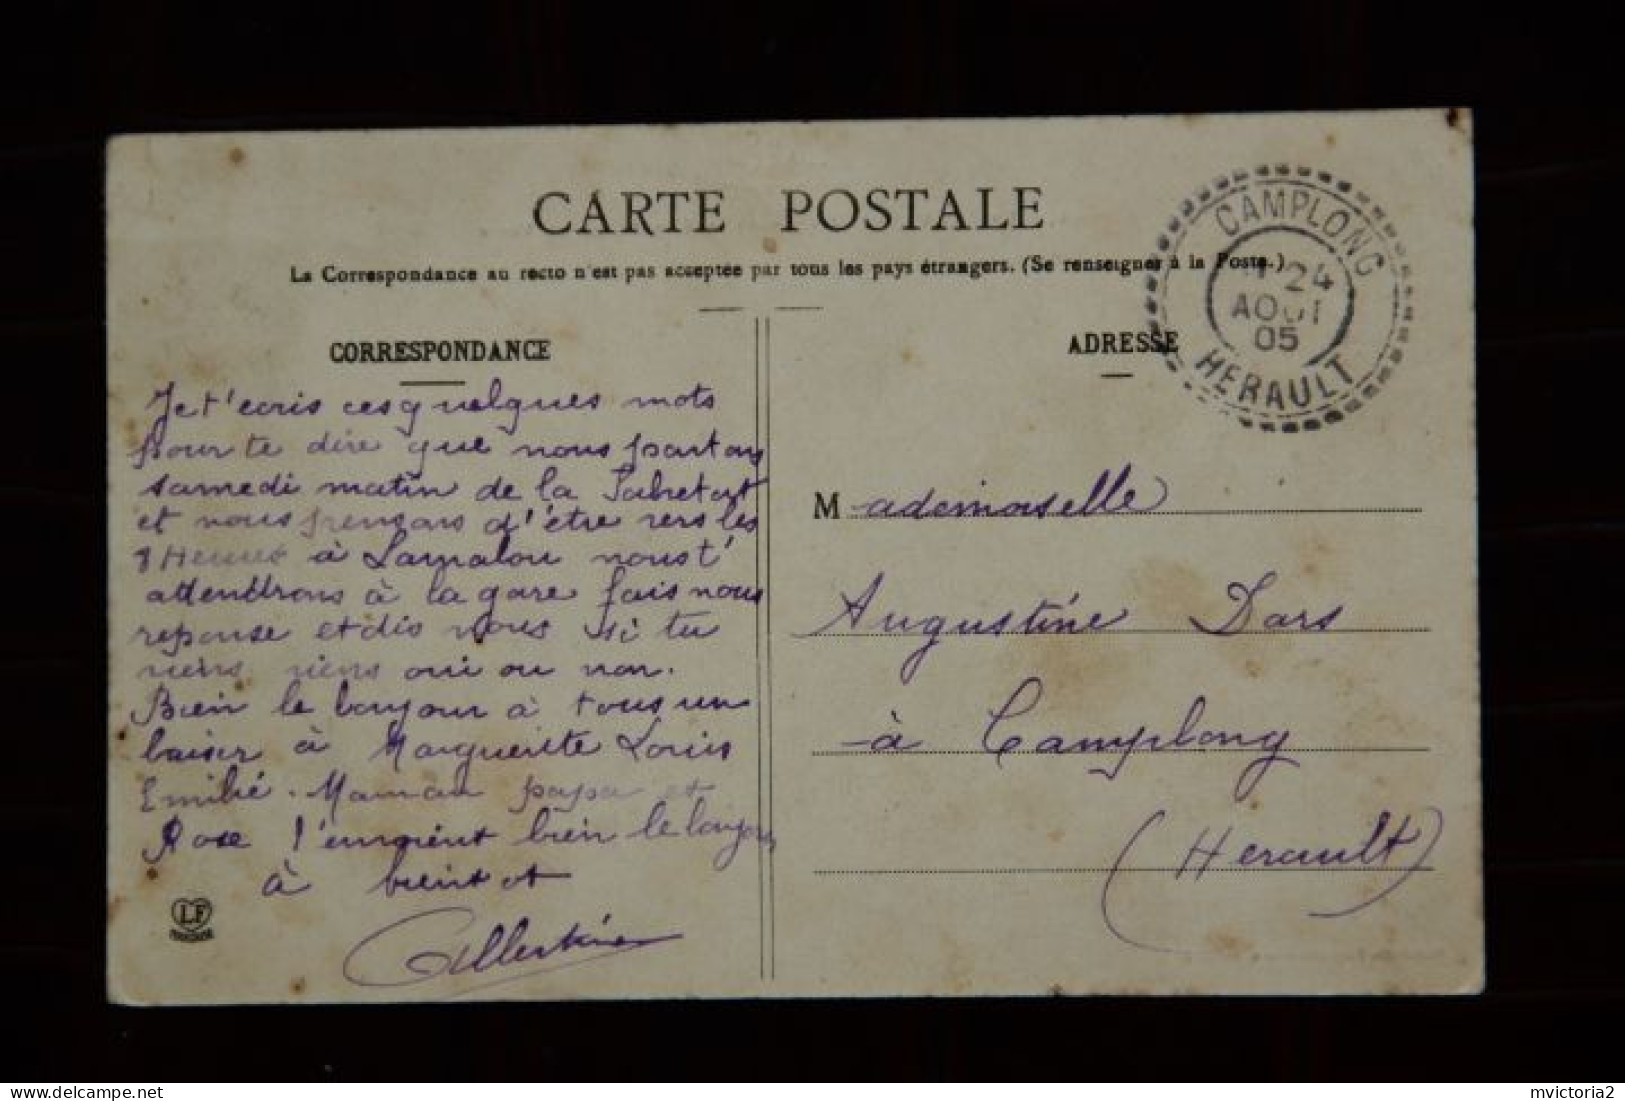 CARTE POSTALE
La Correspondance au recto n'est pas acceptée par tous les pays étrangers. (Se renseigner à la Poste.)
CAMPLONG
24
AOUT
05
HERAULT
CORRESPONDANCE
Je t'ecris ces quelques mots
pour te dire que nous partons
samedi matin de la
et nous pensons d'être vers les
Heures à Lamalou nous t'
attendrons à la gare fais nous
reponse et dis nous si tu
viens viens oui ou non.
Bien le bonjour à tous un
baiser à Marguerite Louis
Emilie. Maman papa et
Rose t'envoient bien le bonjour
à bientot
Albertine
LF
ADRESSE
Mademoiselle
Augustine Dars
à Camplong
(Herault)
delcampe.net
mvictoria2